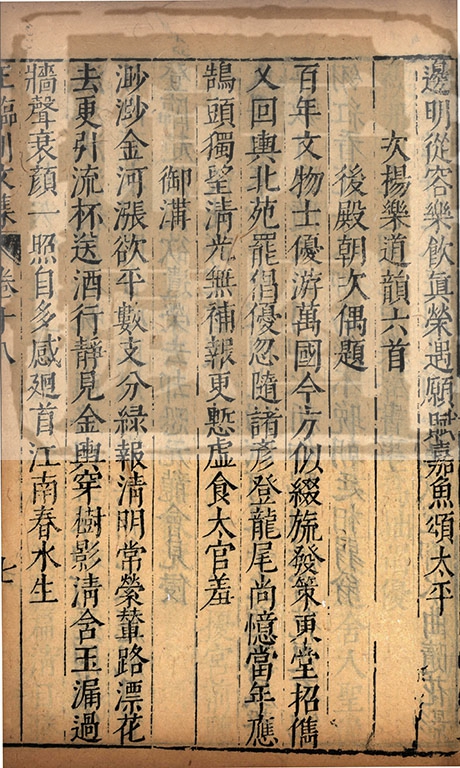 邊明從容樂飲眞榮遇願賦嘉魚頌太平
次揚樂道韻六首
後殿朝次偶題
百年文物士優游萬國今方似綴旒發策東堂招儁
乂回輿北苑罷倡優忽隨諸彥登龍尾尚憶當年應
鵠頭獨望清光無補報更慙虛食大官羞
御溝
渺渺金河漲欲平數支分綠報清明常縈輦路漂花
去更引流杯送酒行靜見金輿穿樹影清含玉漏過
牆聲衰顏一照自多感廻首江南春水生
王臨川文集 卷十八 七